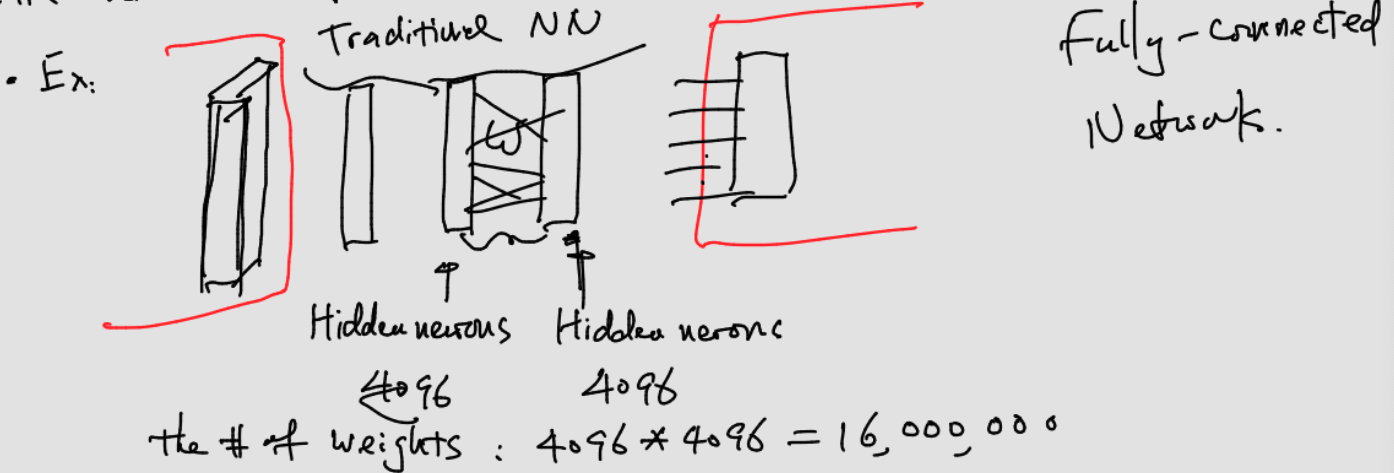 Traditional NN
Fully-connected
Network.
• Ex:
W
Hidden neurons Hidden nerons
4096 4096
the # of weights : 4096 * 4096 = 16,000,000